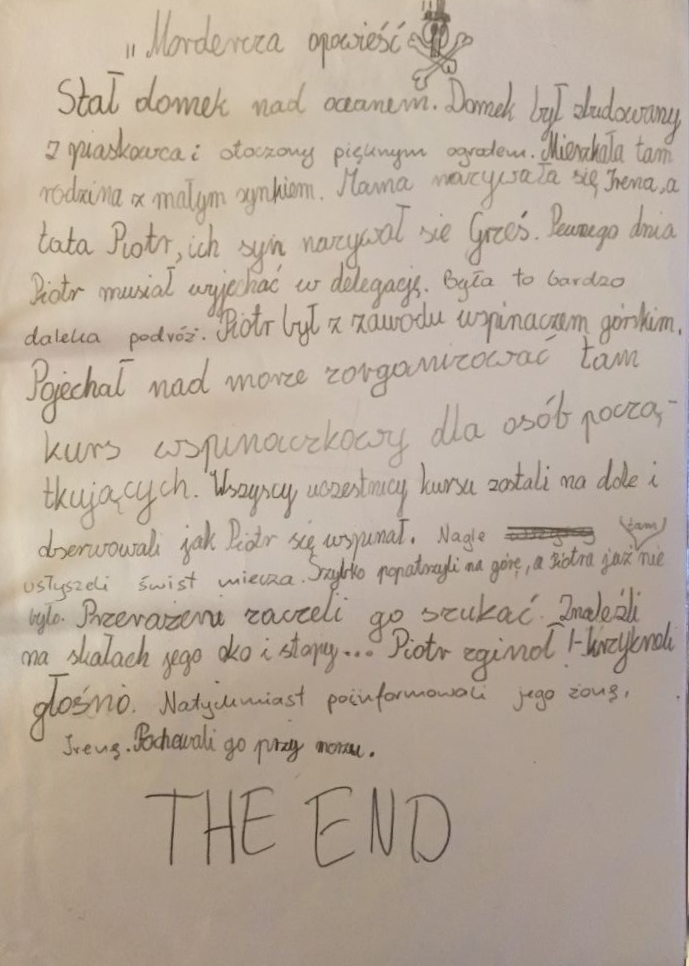 „Mordercza opowieść
Stał domek nad oceanem. Domek był zbudowany
z piaskowca i otoczony pięknym ogrodem. Mieszkała tam
rodzina z małym synkiem. Mama nazywała się Irena, a
tata Piotr, ich syn nazywał sie Grześ. Pewnego dnia
Piotr musiał wyjechać w delegację. Była to bardzo
daleka podróż. Piotr był z zawodu wspinaczem górskim.
Pojechał nad morze zorganizować tam
kurs wspinaczkowy dla osób począ-
tkujących. Wszyscy uczestnicy kursu zostali na dole i
obserwowali jak Piotr się wspinał. Nagle
usłyszeli świst miecza. Szybko popatrzyli na górę, a Piotra już tam nie
było. Przerażeni zaczeli go szukać. Znaleźli
na skałach jego oko i stopy... Piotr zginoł !-krzykneli
głośno. Natychmiast poinformowali jego żonę,
Irenę. Pochowali go przy morzu.
THE END